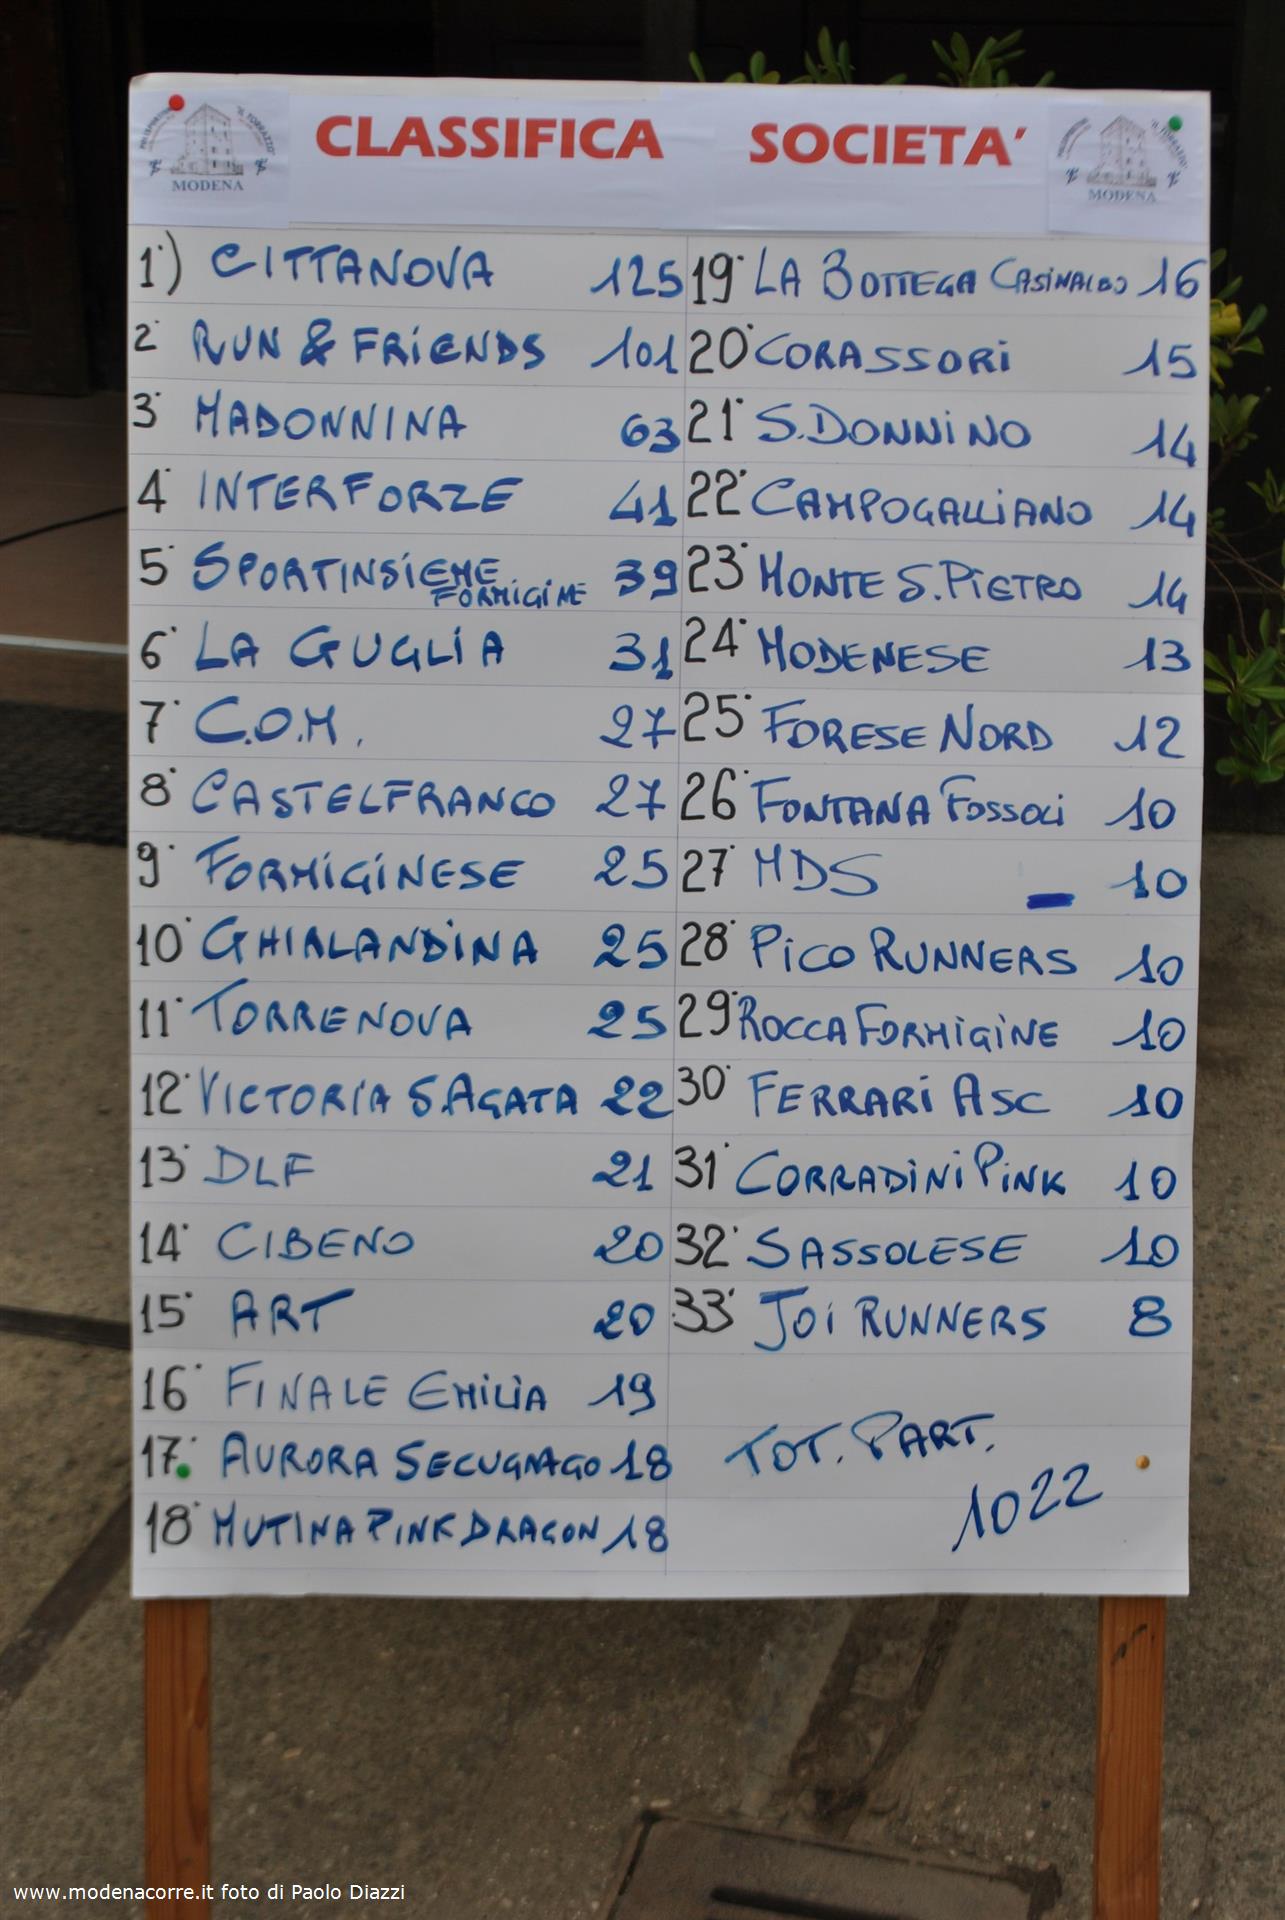 CLASSIFICA SOCIETA'
"IL TORRAZZO"
MODENA
"IL TORRAZZO"
MODENA
1°) CITTANOVA 125
2° RUN & FRiENDS 101
3° MADONNINA 63
4° INTERFORZE 41
5° SPORTINSiEME FORMiGiNE 39
6° LA GUGLiA 31
7° C.O.M. 27
8° CASTELFRANCO 27
9° FORMiGiNESE 25
10° GHIRLANDiNA 25
11° TORRENOVA 25
12° VICTORiA S.AGATA 22
13° DLF 21
14° CIBENO 20
15° ART 20
16° FINALE EMILiA 19
17° AURORA SECUGNAGO 18
18° MUTINA PINK DRAGON 18
19° LA BOTTEGA CASiNALBO 16
20° CORASSORi 15
21° S.DONNiNO 14
22° CAMPOGALLiANO 14
23° MONTE S.PiETRO 14
24° MODENESE 13
25° FORESE NORD 12
26° FONTANA FOSSOLi 10
27° MDS 10
28° PiCO RUNNERS 10
29° ROCCA FORMiGiNE 10
30° FERRARi ASC 10
31° CORRADiNi PiNK 10
32° SASSOLESE 10
33° JOi RUNNERS 8
TOT. PART.
1022
www.modenacorre.it foto di Paolo Diazzi